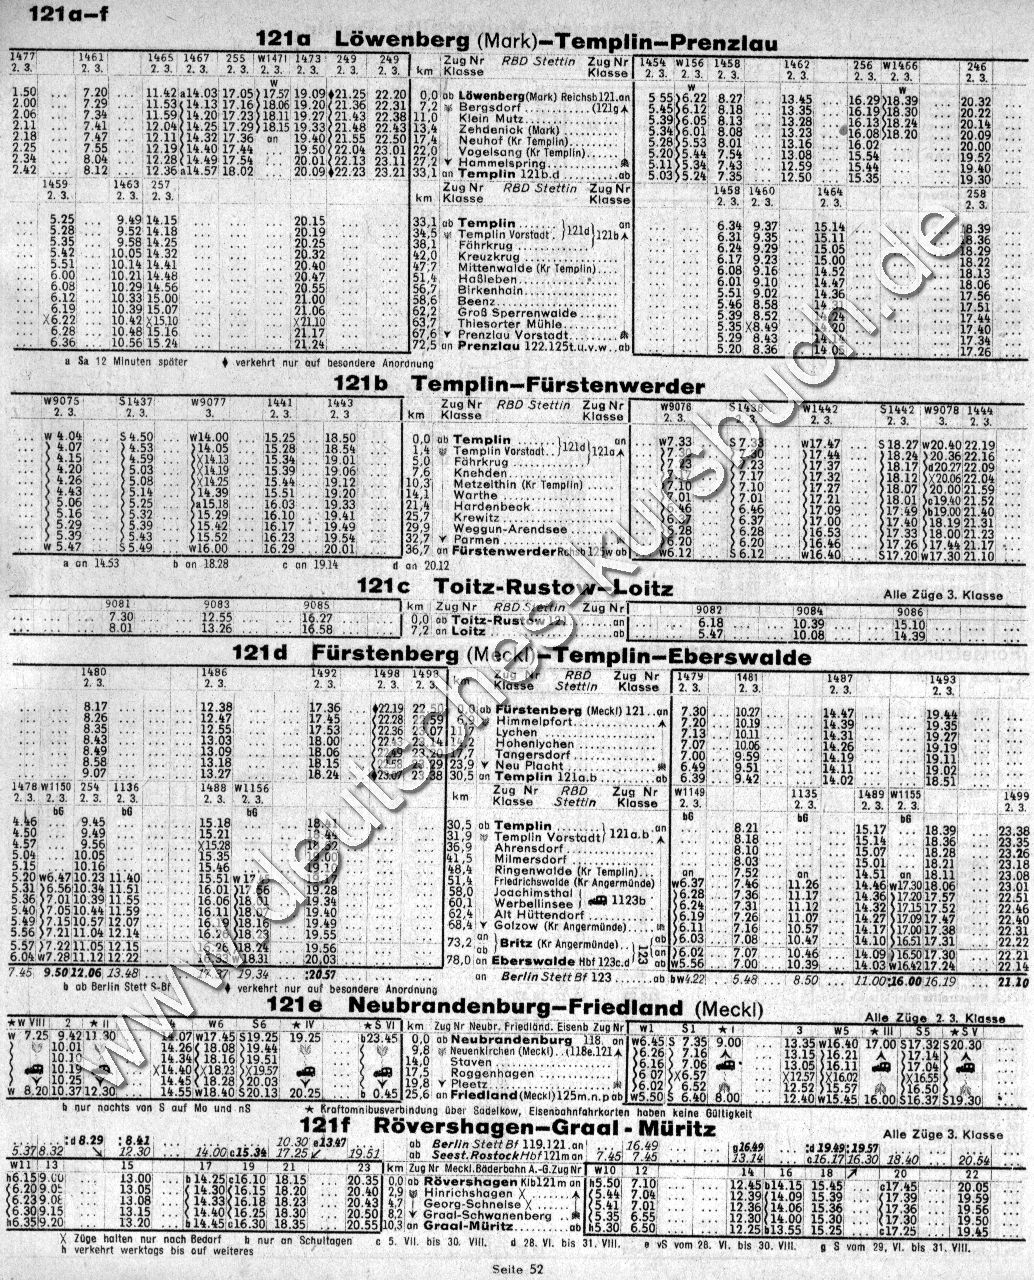 121a–f
121a Löwenberg (Mark)–Templin–Prenzlau
1477 1461 1465 1467 255 W1471 1473 249 249 Zug Nr RBD Stettin Zug Nr 1454 W156 1458 1462 256 W1466 246
2. 3. 2. 3. 2. 3. 2. 3. 2. 3. 2. 3. 2. 3. 2. 3. 2. 3. km Klasse Klasse 2. 3. 2. 3. 2. 3. 2. 3. 2. 3. 2. 3. 2. 3.
1.50 7.20 11.42 a14.03 17.05 17.57 19.09 ♦21.25 22.20 0,0 ab Löwenberg (Mark) Reichsb 121. an 5 55 6.22 8.27 13.45 16.29 18.39 20.32
2.00 7.29 11.53 14.13 17.16 18.06 19.20 21.36 22.31 7,2 Bergsdorf (121g 5.45 6.12 8.18 13.35 16.19 18.30 20.22
2.06 7.34 11.59 14.20 17.23 18.11 19.27 21.43 22.38 11,0 Klein Mutz 5.39 6.05 8.13 13.28 16.13 18.24 20.14
2.11 7.41 12.04 14.25 17.29 18.15 19.33 21.48 22.43 13,4 Zehdenick (Mark) 5.34 6.01 8.08 13.23 16.08 18.20 20.09
2.18 7.47 12.11 14.32 17.36 an 19.40 21.55 22.50 17,4 Neuhof (Kr Templin) 5.28 5.53 8.01 13.16 16.02 20.00
2.25 7.55 12.19 14.40 17.44 19.50 22.04 23.01 22,0 Vogelsang (Kr Templin) 5.20 5.44 7.54 13.08 15.54 19.52
2.34 8.04 12.28 14.49 17.54 20.01 22.13 23.11 27,2 Hammelspring 5.11 5.34 7.43 12.59 15.44 19.40
2.42 8.12 12.36 a14.57 18.02 20.09 ♦22.23 23.21 33,1 an Templin 121b.d ab 5.03 5.24 7.35 12.50 15.35 19.30
1459 1463 257 Zug Nr RBD Stettin Zug Nr 1458 1460 1464 258
2. 3. 2. 3. 2. 3. km Klasse Klasse 2. 3. 2. 3. 2. 3. 2. 3.
5.25 9.49 14.15 20.15 33,1 ab Templin an 6.34 9.37 15.14 18.39
5.28 9.52 14.18 20.19 34,5 Templin Vorstadt 121d 121b 6.31 9.35 15.11 18.36
5.35 9.58 14.25 20.25 38,1 Fährkrug 6.24 9.29 15.05 18.29
5.42 10.05 14.32 20.32 42,0 Kreuzkrug 6.17 9.23 15.00 18.22
5.51 10.14 14.41 20.40 47,7 Mittenwalde (Kr Templin) 6.08 9.16 14.52 18.13
6.00 10.21 14.48 20.47 51,4 Haßleben 6.01 9.10 14.47 18.06
6.08 10.29 14.56 20.55 56,7 Birkenhain 5.51 9.02 14.36 17.56
6.12 10.33 15.00 21.00 58,6 Beenz 5.46 8.58 17.51
6.19 10.39 15.07 21.06 62,2 Groß Sperrenwalde 5.39 8.52 14.24 17.44
X6.22 10.42 X15.10 X21.10 63,7 Thiesorter Mühle 5.35 X8.49 14.20 17.40
6.28 10.48 15.16 21.17 67,6 Prenzlau Vorstadt 5.29 8.43 14.14 17.34
6.36 10.56 15.24 21.24 72,5 an Prenzlau 122.125t.u.v.w ab 5.20 8.36 14.05 17.26
a Sa 12 Minuten später ♦ verkehrt nur auf besondere Anordnung
121b Templin–Fürstenwerder
W9075 S1437 W9077 1441 1443 Zug Nr RBD Stettin Zug Nr W9076 S1438 W1442 S1442 W9078 1444
2. 3. 2. 3. 3. 2. 3. 2. 3. km Klasse Klasse 2. 3. 2. 3. 2. 3. 2. 3. 2. 3. 2. 3.
W 4.04 S 4.50 W14.00 15.25 18.50 0,0 ab Templin an W7.33 S 7.38 W17.47 S18.27 W20.40 22.19
4.07 4.53 14.05 15.28 18.54 1,4 Templin Vorstadt 121d 121a 17.44 18.24 20.36 22.16
4.15 4.59 X14.13 15.34 19.01 5,0 Fährkrug 17.37 18.17 a20.27 22.09
4.20 5.03 X14.19 15.39 19.06 7,6 Knehden 7.17 17.32 18.12 X20.06 22.04
4.26 5.08 X14.25 15.44 19.12 10,3 Metzelthin (Kr Templin) 7.10 17.27 18.07 20.00 21.59
4.43 5.14 14.39 15.51 19.20 14,1 Warthe 7.01 7.06 17.21 18.01 a19.40 21.52
5.06 5.25 a15.18 16.03 19.33 21,4 Hardenbeck 17.09 17.49 b19.00 21.40
5.16 5.32 15.29 16.10 19.41 25,7 Krewitz 6.37 17.00 17.40 18.19 21.31
5.29 5.39 15.42 16.17 19.49 29,9 Weggun-Arendsee 6.28 6.28 16.53 17.33 18.00 21.23
5.39 5.43 15.52 16.23 19.54 32,7 Parmen 6.20 6.20 16.46 17.26 17.44 21.17
W 5.47 S 5.49 W16.00 16.29 20.01 36,7 an Fürstenwerder Rchsb 125w ab W6.12 S 6.12 W16.40 S17.20 W17.30 21.10
a an 14.53 b an 18.28 c an 19.14 d an 20.12
121c Toitz-Rustow–Loitz Alle Züge 3. Klasse
9081 9083 9085 km Zug Nr RBD Stettin Zug Nr 9082 9084 9086
7.30 12.55 16.27 0,0 ab Toitz-Rustow 121 an 6.18 10.39 15.10
8.01 13.26 16.58 7,2 an Loitz ab 5.47 10.08 14.39
121d Fürstenberg (Meckl)–Templin–Eberswalde
1480 1486 1492 1498 1498 Zug Nr RBD Zug Nr 1479 1481 1487 1493
2. 3. 2. 3. 2. 3. 2. 3. 2. 3. Klasse Stettin Klasse 2. 3. 2. 3. 2. 3. 2. 3.
8.17 12.38 17.36 ♦22.19 22.50 0,0 ab Fürstenberg (Meckl) 121 an 7.30 10.27 14.47 19.44
8.26 12.47 17.45 22.28 22.59 6,9 Himmelpfort 7.20 10.19 14.39 19.35
8.35 12.55 17.53 22.36 23.07 Lychen 7.13 10.11 14.31 19.27
8.43 13.03 18.00 23.14 Hohenlychen 7.07 10.06 14.26 19.19
8.49 13.09 18.06 Tangersdorf 7.00 9.59 14.19 19.11
8.58 13.18 18.15 23.29 23,9 Neu Placht 6.49 9.51 14.11 19.02
9.07 13.27 18.24 23.38 30,5 an Templin 121a.b ab 6.39 9.42 14.02 18.51
1478 W1150 254 1136 1488 W1156 Zug Nr RBD Zug Nr W1149 1135 1489 W1155 1499
2. 3. 2. 3. 2. 3. 2. 3. 2. 3. 2. 3. km Klasse Stettin Klasse 2. 3. 2. 3. 2. 3. 2. 3. 2. 3.
4.46 9.45 15.18 30,5 ab Templin an 8.21 15.17 18.39 23.38
4.50 9.49 15.21 31,9 Templin Vorstadt 121a.b 8.18 15.14 18.36 23.35
4.57 9.56 X15.28 36,9 Ahrensdorf 8.10 15.07 18.28 23.26
5.04 10.05 15.35 41,5 Milmersdorf 8.03 15.01 18.21 23.18
5.15 10.16 15.46 48,4 Ringenwalde (Kr Templin) an 7.52 an 14.51 an 18.11 23.08
5.20 W6.47 10.23 11.40 15.51 51,4 Friedrichswalde (Kr Angermünde) W6.37 7.46 11.26 14.46 W17.30 18.06 23.01
5.31 6.56 10.34 11.51 16.01 19.28 58,0 Joachimsthal 6.28 7.36 11.17 14.36 17.20 17.57 22.51
5.36 7.01 10.39 11.55 16.06 19.34 60,1 Werbellinsee 1123b 6.24 7.31 11.12 14.32 17.15 17.52 22.46
5.40 7.05 10.44 11.59 16.11 19.40 62,4 Alt Hüttendorf 6.19 7.26 11.07 14.27 17.09 17.47 22.40
5.49 7.15 10.57 12.07 19.49 68,4 Golzow (Kr Angermünde) 6.11 7.16 10.57 14.17 17.00 17.38 22.31
5.56 7.21 11.04 12.14 19.55 73,2 an Britz (Kr Angermünde) ab 6.03 7.08 10.47 14.10 16.51 17.31 22.22
5.57 7.22 11.05 12.15 19.56 ab 123 an 6.02 7.07 10.46 14.09 16.50 17.30 22.21
6.04 W7.28 11.12 12.22 20.03 78,0 an Eberswalde Hbf 123c.d ab W5.56 7.00 10.39 14.03 W16.42 17.24 22.14
7.45 9.50 12.06 13.48 17.37 19.34 20.57 an Berlin Stett Bf 123 ab W4.22 5.48 8.50 11.00 16.00 16.19 21.10
b ab Berlin Stett S-Bf ♦ verkehrt nur auf besondere Anordnung
121e Neubrandenburg–Friedland (Meckl) Alle Züge 2. 3. Klasse
★W VIII 2 ★II 4 W6 S6 ★IV ★S VI km Zug Nr Neubr. Friedländ. Eisenb Zug Nr W1 S1 ★I 3 W5 ★III S5 ★S V
W 7.25 9.42 11.30 14.07 W17.45 S18.25 19.25 b23.45 0,0 ab Neubrandenburg 118. an W6.45 S 7.35 9.00 13.35 W16.40 17.00 S17.32 S20.30
10.01 14.26 18.08 19.44 9,8 Neuenkirchen (Meckl) (118e.121 6.26 7.16 13.15 16.21 17.14
10.10 14.34 18.16 19.51 14,0 Staven 6.16 7.06 13.05 16.11 17.04
10.19 X14.40 X18.23 X19.57 17,5 Roggenhagen 6.07 X6.57 X12.57 X16.02 X16.55
10.25 14.45 18.28 20.03 19,8 Pleetz 6.02 6.52 12.52 15.57 16.50
W 8.20 10.37 12.30 14.55 W18.40 S20.13 20.25 b 0.45 25,6 an Friedland (Meckl) 125m.n.p ab W5.50 S 6.40 8.00 12.40 W15.45 16.00 S16.37 S19.30
b nur nachts von S auf Mo und nS ★ Kraftomnibusverbindung über Sadelkow, Eisenbahnfahrkarten haben keine Gültigkeit
121f Rövershagen–Graal-Müritz Alle Züge 3. Klasse
d 8.29 8.41 10.30 e13.47 ab Berlin Stett Bf 119.121 an 16.49 g16.49 d19.49 19.57
5.37 8.32 12.30 14.00 c15.34 17.25 19.51 ab Seest. Rostock Hbf 121m an 7.45 7.45 13.14 c16.17 16.30 18.40 20.54
W11 13 15 17 19 21 23 km Zug Nr Meckl. Bäderbahn A.-G. Zug Nr W10 12 14 16 18 20 22
h6.15 9.00 13.00 b14.25 c16.10 18.15 20.35 0,0 ab Rövershagen Klb 121m an h5.50 7.10 12.45 b14.15 15.45 c17.45 20.05
6.20 9.05 13.05 14.30 16.15 18.20 20.40 2,9 Hinrichshagen X 5.44 7.04 12.39 14.09 15.39 17.39 19.59
6.23 9.08 13.08 14.33 16.18 18.23 20.43 4,7 Georg-Schneise X 5.41 7.01 12.36 14.06 15.36 17.36 19.56
6.30 9.15 13.15 14.40 16.25 18.30 20.50 8,2 Graal-Schwanenberg 5.35 6.55 12.30 14.00 15.30 17.30 19.51
h6.35 9.20 13.20 b14.45 c16.30 18.35 20.55 10,3 an Graal-Müritz ab h5.30 6.50 12.25 b13.55 15.25 c17.25 19.45
X Züge halten nur nach Bedarf b nur an Schultagen c 5. VII. bis 30. VIII. d 28. VI. bis 31. VIII. e vS vom 28. VI. bis 30. VIII. g S vom 29. VI. bis 31. VIII.
h verkehrt werktags bis auf weiteres
Seite 52
www.deutsches-kursbuch.de